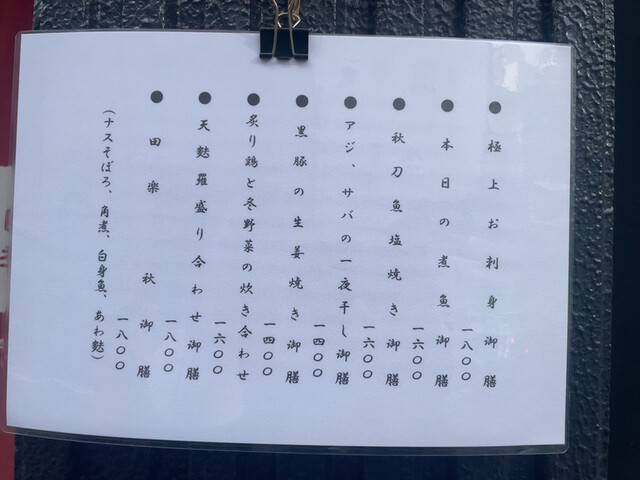 ● 極上お刺身 御膳
一八〇〇
● 本日の煮魚 御膳
一六〇〇
● 秋刀魚塩焼き 御膳
一六〇〇
● アジ、サバの一夜干し御膳
一四〇〇
● 黒豚の生姜焼き 御膳
一四〇〇
● 炙り鶏と冬野菜の炊き合わせ
一六〇〇
● 天麩羅盛り合わせ御膳
一八〇〇
● 田楽 秋 御膳
一八〇〇
(ナスそぼろ、角煮、白身魚、あわ麩)